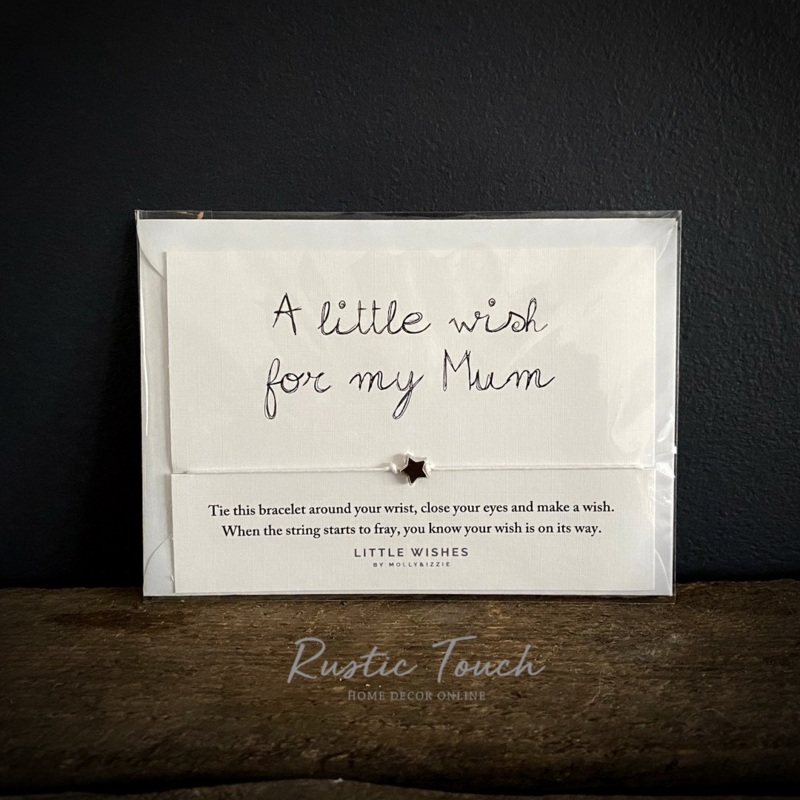 A little wish
for my Mum
Tie this bracelet around your wrist, close your eyes and make a wish.
When the string starts to fray, you know your wish is on its way.
LITTLE WISHES
BY MOLLY&IZZIE
Rustic Touch
HOME DECOR ONLINE